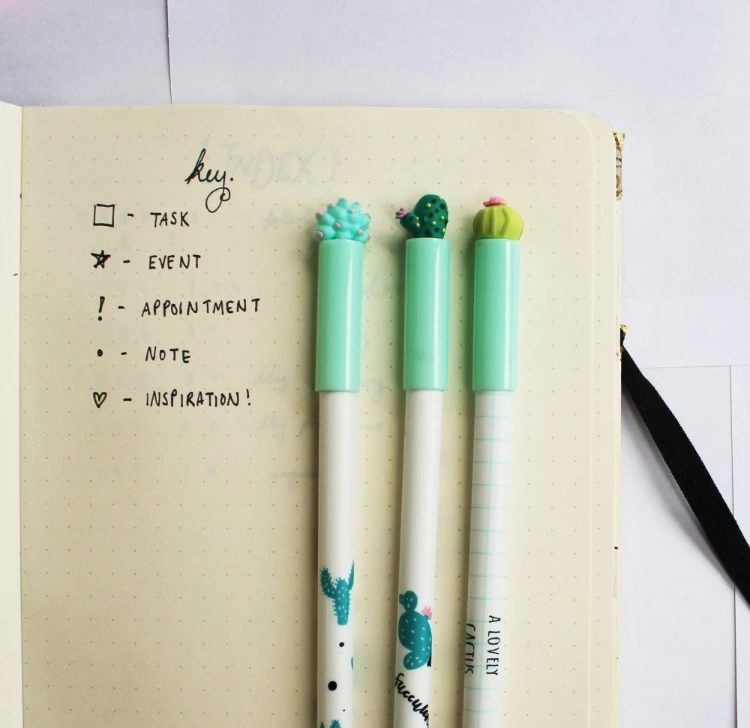 key.
□ - TASK
☆ - EVENT
! - APPOINTMENT
• - NOTE
♡ - INSPIRATION!
A LOVELY
CACTUS